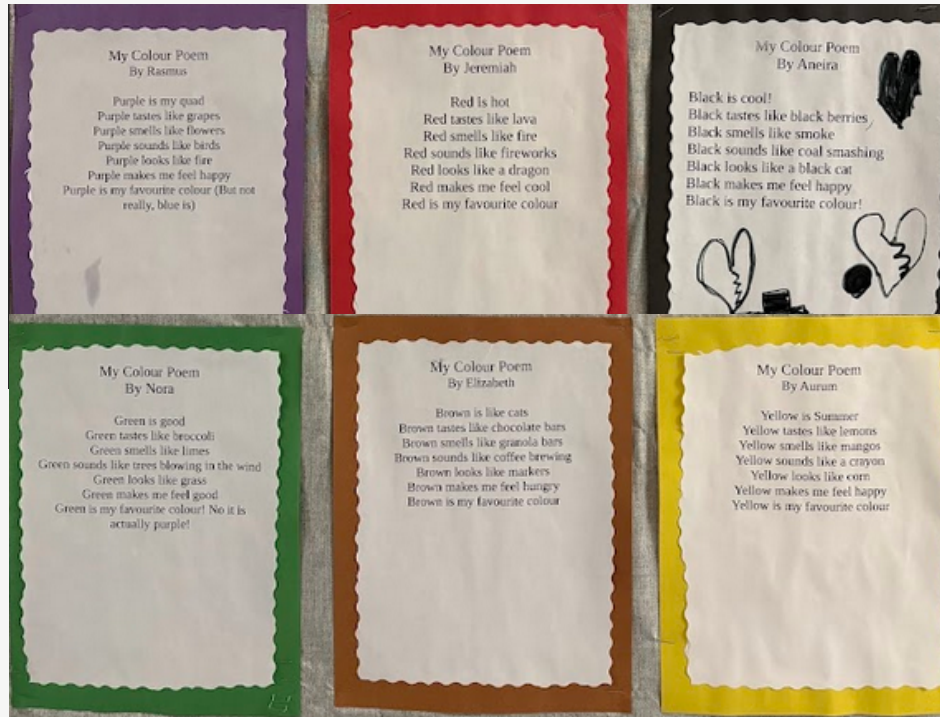 My Colour Poem
By Rasmus
Purple is my quad
Purple tastes like grapes
Purple smells like flowers
Purple sounds like birds
Purple looks like fire
Purple makes me feel happy
Purple is my favourite colour (But not
really, blue is)
My Colour Poem
By Jeremiah
Red is hot
Red tastes like lava
Red smells like fire
Red sounds like fireworks
Red looks like a dragon
Red makes me feel cool
Red is my favourite colour
My Colour Poem
By Aneira
Black is cool!
Black tastes like black berries
Black smells like smoke
Black sounds like coal smashing
Black looks like a black cat
Black makes me feel happy
Black is my favourite colour!
My Colour Poem
By Nora
Green is good
Green tastes like broccoli
Green smells like limes
Green sounds like trees blowing in the wind
Green looks like grass
Green makes me feel good
Green is my favourite colour! No it is
actually purple!
My Colour Poem
By Elizabeth
Brown is like cats
Brown tastes like chocolate bars
Brown smells like granola bars
Brown sounds like coffee brewing
Brown looks like markers
Brown makes me feel hungry
Brown is my favourite colour
My Colour Poem
By Aurum
Yellow is Summer
Yellow tastes like lemons
Yellow smells like mangos
Yellow sounds like a crayon
Yellow looks like corn
Yellow makes me feel happy
Yellow is my favourite colour